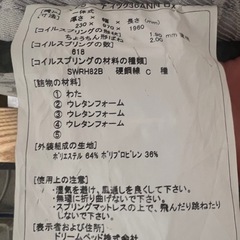 一体式
寸法 厚さ × 幅 × 長さ (mm)
230 × 970 × 1960
[コイルスプリングの形状]
ちょうちん形ばね 1.90 mm
[コイルスプリングの数]
618
[コイルスプリングの材料の種類]
SWRH82B 硬鋼線 C 種
[詰物の材料]
① わた
② ウレタンフォーム
③ ウレタンフォーム
④ ウレタンフォーム
⑤
[外装組成の生地]
ポリエステル 64% ポリプロピレン 36%
[使用上の注意]
・湿気を避け、風通しを良くして下さい。
・無理に折り曲げないで下さい。
・スプリングマットレスの上で、飛んだり跳ねたり
しないで下さい。
[表示者および住所]
ドリームベッド株式会社